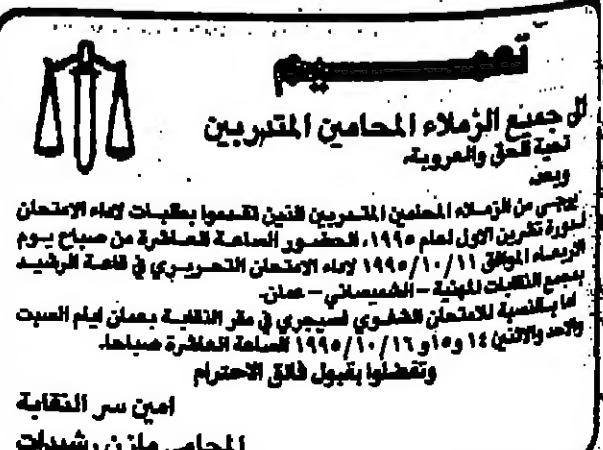 تعميم
الى جميع الزملاء المحامين المتدربين
تحية الحق والعروبة،
وبعد،
يرجى من الزملاء المحامين المتدربين الذين تقدموا بطلبات لاداء الامتحان
لدورة تشرين الاول لعام ١٩٩٥، الحضور الساعة العاشرة من صباح يوم
الاربعاء الموافق ١٩٩٥/١٠/١١ لاداء الامتحان التحريري في قاعة الرشيد
بمجمع النقابات المهنية – الشميساني – عمان.
اما بالنسبة للامتحان الشفوي فسيجري في مقر النقابة بعمان ايام السبت
والاحد والاثنين ١٤ و١٥ و١٩٩٥/١٠/١٦ الساعة العاشرة صباحا.
وتفضلوا بقبول فائق الاحترام
امين سر النقابة
المحامي مازن رشيدات